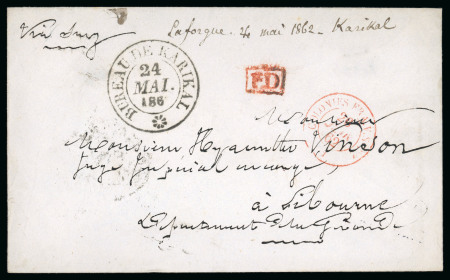 Via Suez
Laforgue. 24 mai 1862 - Karikal
BUREAU DE KARIKAL
24
MAI.
186
PD
COLONIES FR
Monsieur
Monsieur Hyacinthe Vinson
Juge Impérial
à Libourne
Département de la Gironde